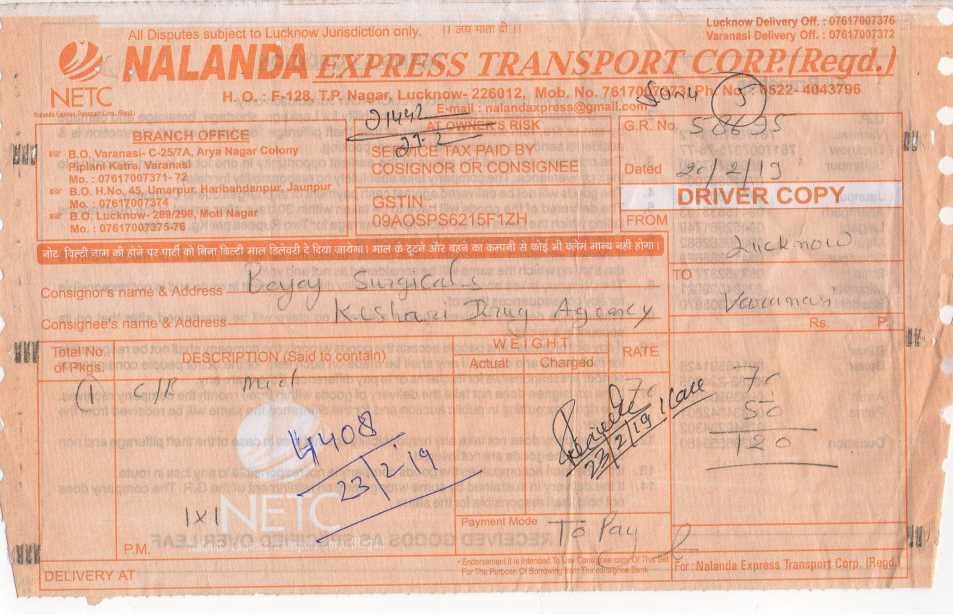 All Disputes subject to Lucknow Jurisdiction only.
।। जय माता दी ।।
Lucknow Delivery Off. : 07617007376
Varanasi Delivery Off. : 07617007372
NALANDA EXPRESS TRANSPORT CORP.(Regd.)
NETC
Nalanda Express Transport Corp. (Regd.)
H. O. : F-128, T.P. Nagar, Lucknow- 226012, Mob. No. 7617007073, Ph. No. 0522- 4043796
E-mail : nalandaxpress@gmail.com
Sonu 5
21442
27.2
BRANCH OFFICE
B.O. Varanasi- C-25/7A, Arya Nagar Colony
Piplani Katra, Varanasi
Mo. : 07617007371- 72
B.O. H.No. 45, Umarpur, Haribandanpur, Jaunpur
Mo. : 07617007374
B.O. Lucknow- 289/298, Moti Nagar
Mo. : 07617007375-76
AT OWNER'S RISK
SERVICE TAX PAID BY
COSIGNOR OR CONSIGNEE
GSTIN :
09AOSPS6215F1ZH
G.R. No. 58695
Dated 20/2/19
DRIVER COPY
FROM
Lucknow
TO
Varanasi
नोट- बिल्टी नाम की होने पर पार्टी को बिना बिल्टी माल डिलेवरी दे दिया जायेगा। माल के टूटने और बहने का कम्पनी से कोई भी क्लेम मान्य नहीं होगा।
Consignor's name & Address Bajaj Surgicals
Consignee's name & Address Keshari Drug Agency
Rs. P.
Total No. of Pkgs.
DESCRIPTION (Said to contain)
WEIGHT
Actual Charged
RATE
1 C/B Med
70
70
50
120
4408
23/2.19
23/2/19
1x1
NETC
P.M.
Payment Mode To Pay
DELIVERY AT
For : Nalanda Express Transport Corp. (Regd.)